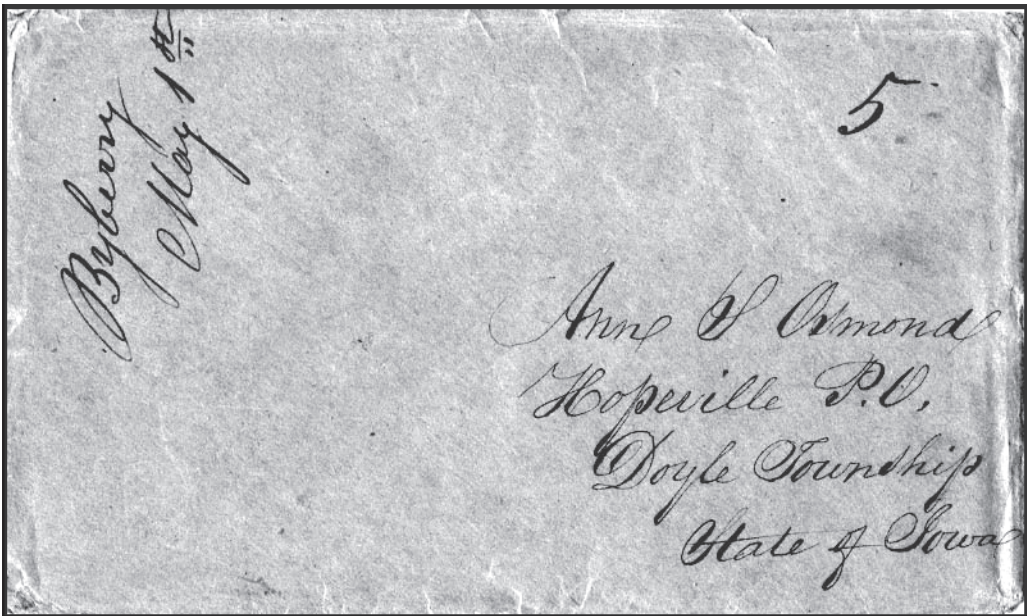 Byberry
May 1st
5
Anne S Osmond
Hopeville P.O,
Doyle Township
State of Iowa